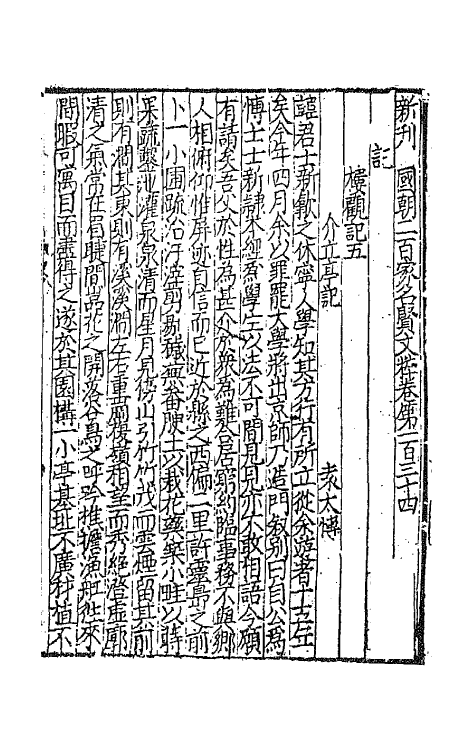 新刊　國朝二百家名賢文粹卷第一百三十四
記
樓觀記五
介立亭記　　袁太傅
諱君士新歙之休寧人學知其方行有所立從余遊者十五年
矣今年四月余以罪罷大學將出京師乃造門敘別曰自公為
博士士新隸本經為學生以法不可間見見亦不敢相語今願
有請矣吾父於性為甚介於衆為難合居窮約臨事務不與鄉
人相俯仰惟屏迹自信而已近於縣之西偏一里許靈鳥之前
卜一小圃疏治汙溼剪剔穢蕪畚腴土以栽花藥築小畦以蒔
果蔬鑿沼灌泉泉清而星月見傍山引竹竹茂而雲煙留其前
則有澗其東則有溪溪澗左右重岡複嶺相望而秀絕澄虛廓
清之氣常在眉睫間嵓花之開落谷鳥之呼吟推擔漁艇徃來
間暇可寓目而盡得之遂於其園構一小亭基址不廣材植不